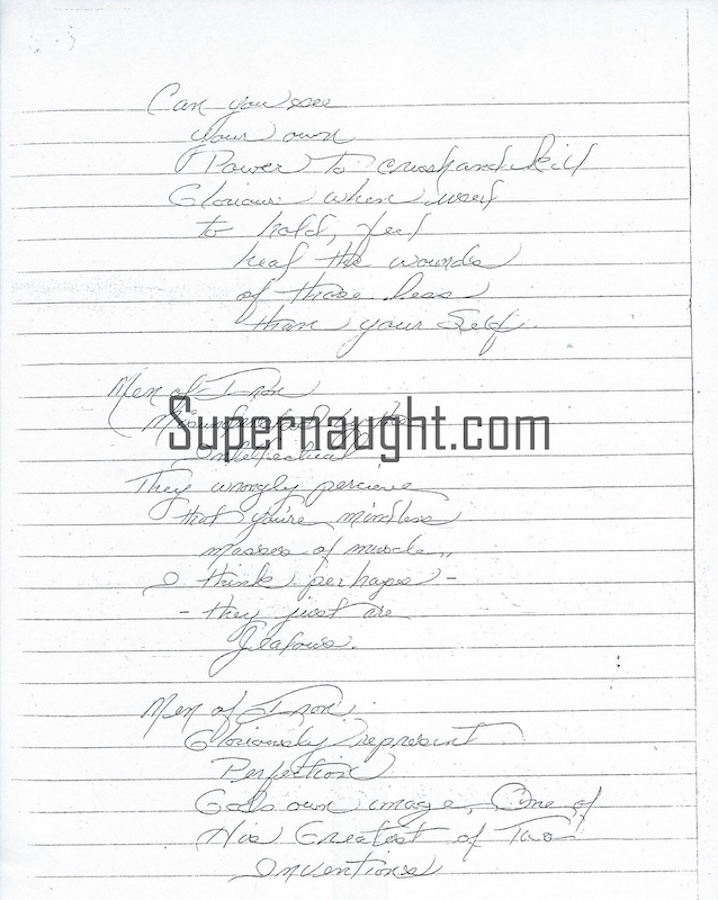 Can you see
your own
Power to crush and kill
Glorious when used
to hold, feel
heal the wounds
of those less
than your Self.
Men of Iron
Misunderstood by the
Supernaught.com
Intellectual
They wrongly percieve
that you're mindless
masses of muscle,,
I think perhaps -
- they just are
Jealous.
Men of Iron.
Gloriously represent
Perfection
Gods own image, One of
His Greatest of Two
Inventions